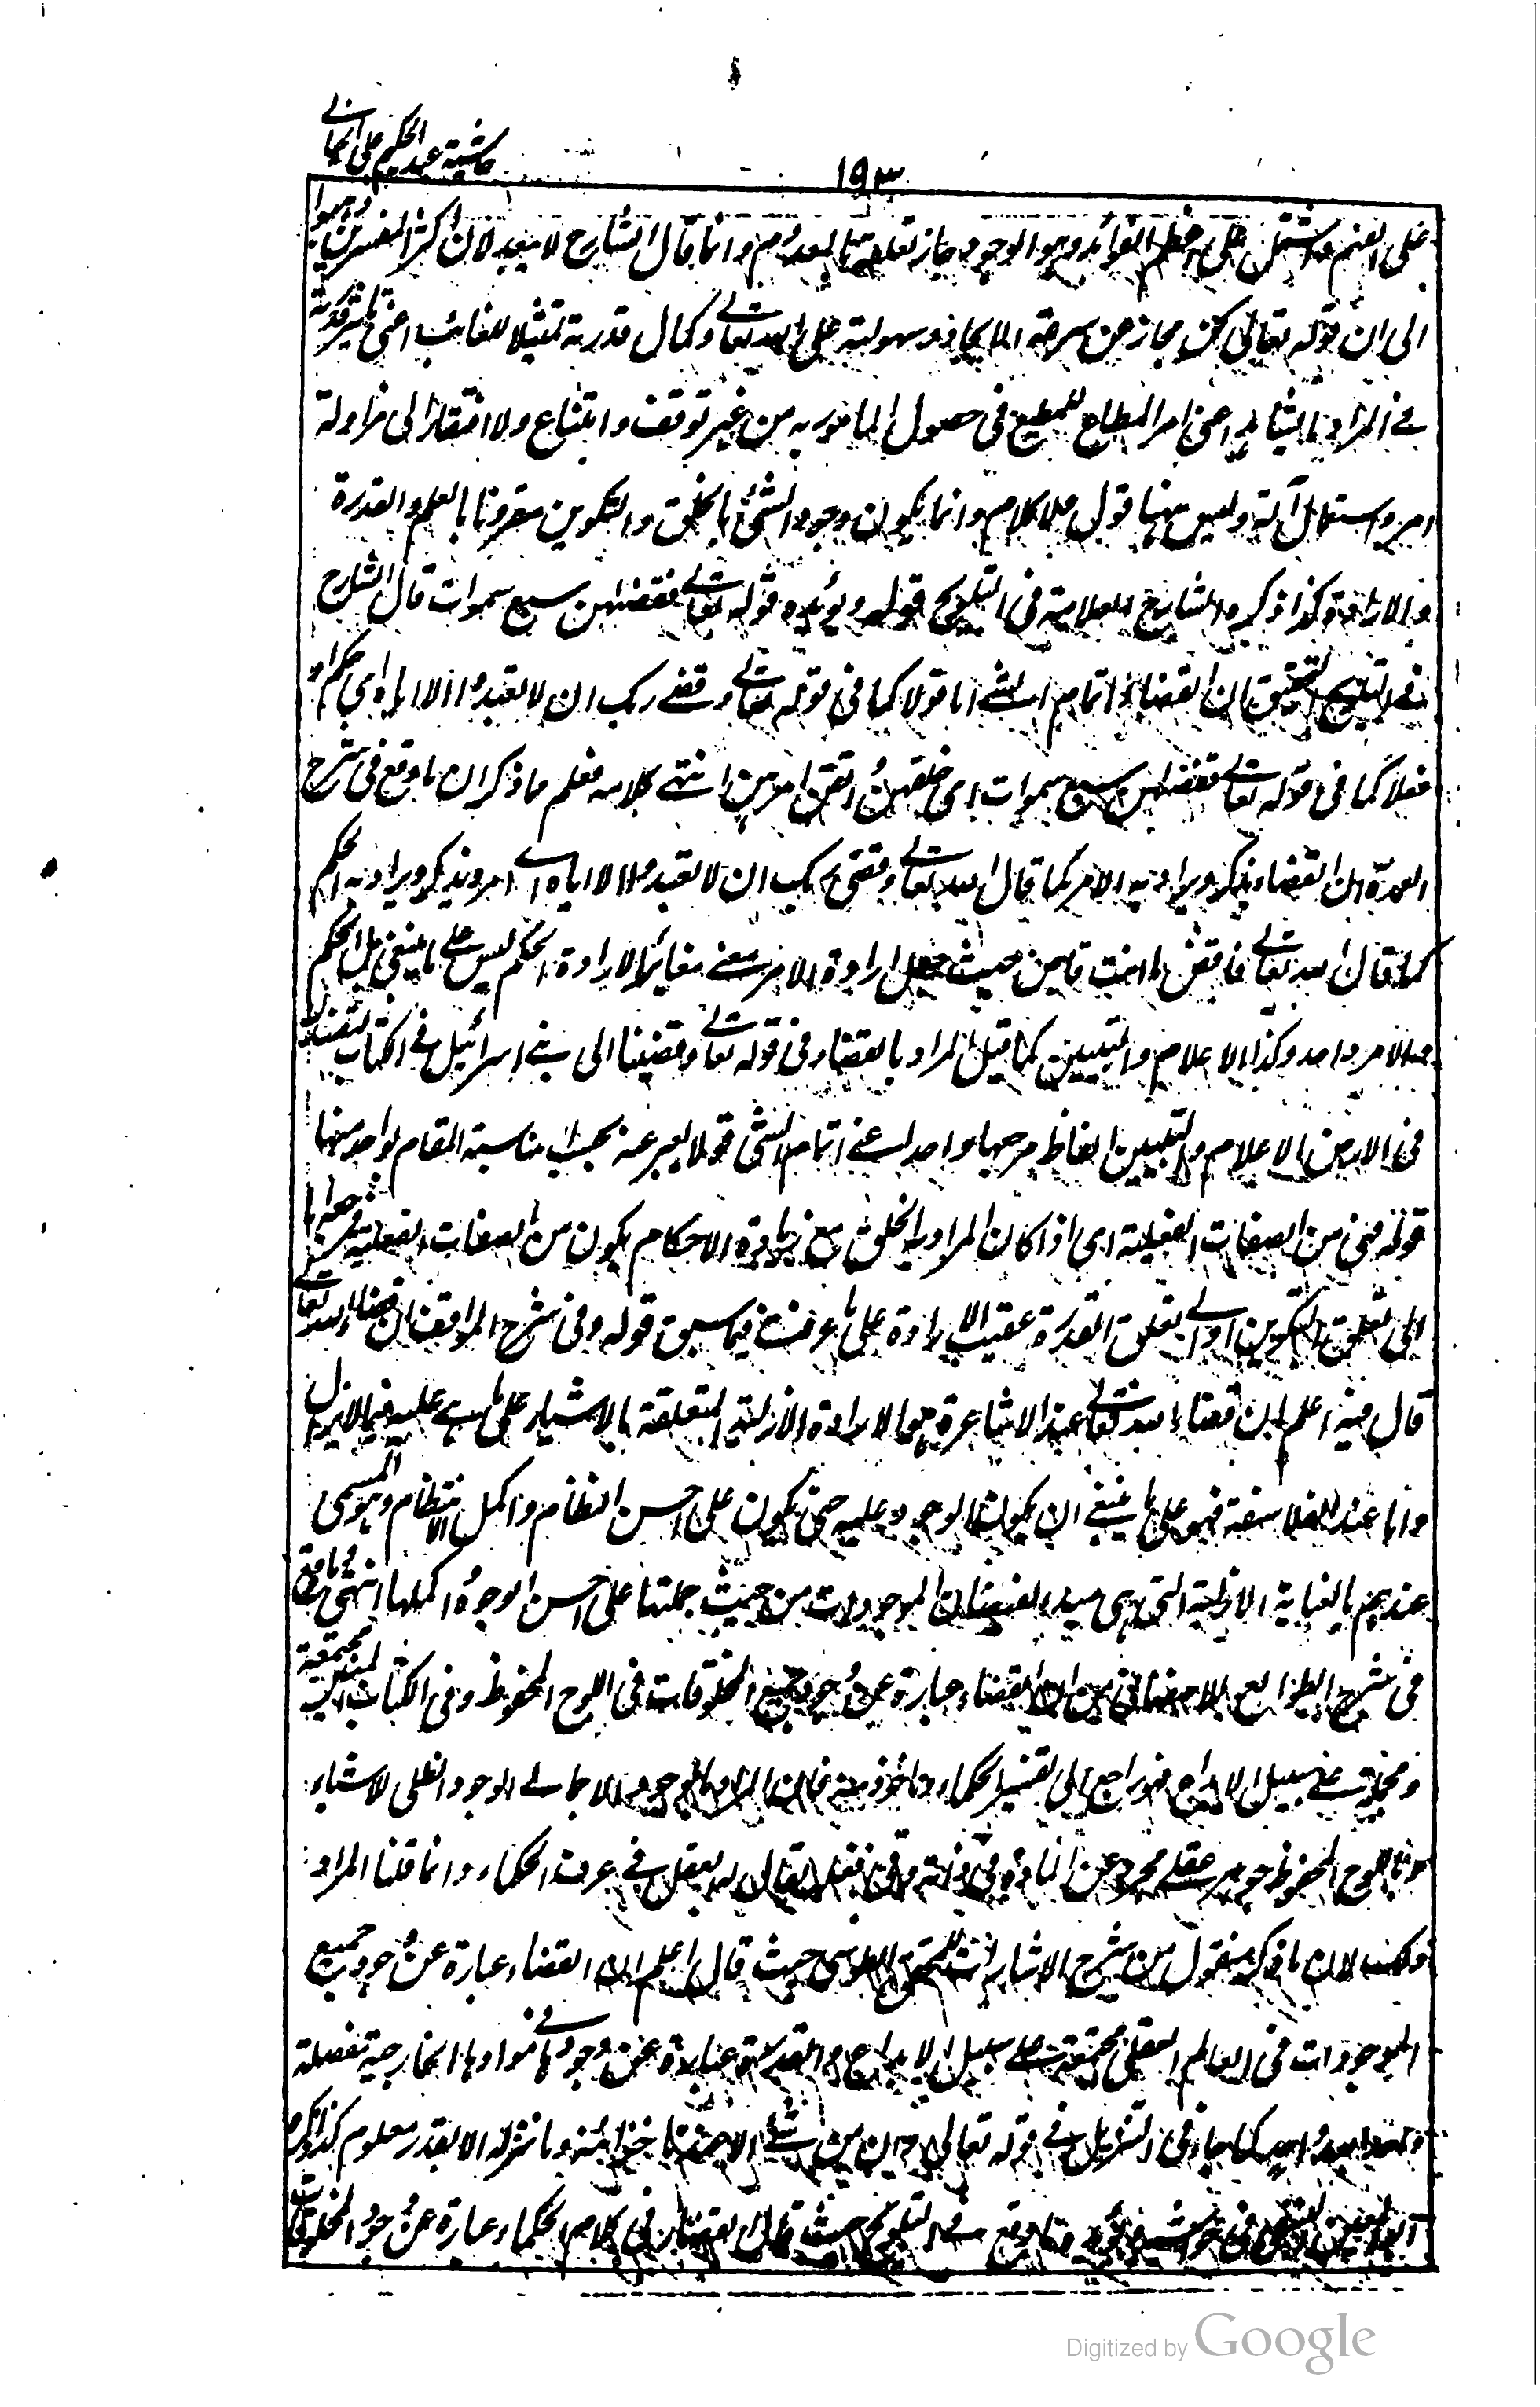 حاشية عبد الحكيم على الخيالے
١٩٣
على الفهم واشتمل على اعظم الفوائد وهو الوجود جاز تعلقه بالمعدوم وانما قال الشارح لا يبعد لان اكثر المفسرين ذهبوا
الى ان قوله تعالى كن مجاز عن سرعة الايجاد وسهولته على الله تعالے وكمال قدرته تمثيلا للغائب اعنى تاثير قدرته
فے المراد بالشاهد اعنى امر المطاع للمطيع فى حصول المامور به من غير توقف وامتناع ولا افتقار الى مزاولة
امر واستعمال آلة وليس ههنا قول ولا كلام وانما يكون وجود الشئ بالخلق والتكوين مقرونا بالعلم والقدرة
والارادة وكذا ذكره الشارح العلامة فى التلويح قوله ويؤيده قوله تعالے فقضاهن سبع سموات قال الشارح
فے التلويح التحقيق ان القضاء اتمام الشے اما قولا كما فى قوله تعالے وقضے ربك ان لا تعبدوا الا اياه اى حكم او
فعلا كما فى قوله تعالے فقضاهن سبع سموات اى خلقهن واتقن امرهن انتهے كلامه فعلم مما ذكر ان ما وقع فى شرح
العمدة ان القضاء يذكر ويراد به الامر كما قال الله تعالے وقضى ربك ان لا تعبدوا الا اياه اے امر ويذكر ويراد به الحكم
كما قال الله تعالے فاقض ما انت قاض حيث جعل ارادة الامر معنے مغائرا لارادة الحكم ليس علے ما ينبغى بل الحكم
والامر واحد وكذا الاعلام والتبيين كما قيل المراد بالقضاء فى قوله تعالے وقضينا الى بنے اسرائيل فے الكتاب لتفسدن
فى الارض الاعلام والتبيين الفاظ مرجعها واحد اعنے اتمام الشئ قولا يعبر عنه بحسب مناسبة المقام بواحد منها
قوله فهى من الصفات الفعلية اى اذا كان المراد به الخلق مع زيادة الاحكام يكون من الصفات الفعلية مرجعها اما
الى تعلق التكوين او الے تعلق القدرة عقيب الارادة على ما عرفت فيما سبق قوله وفى شرح المواقف ان قضاء الله تعالے
قال فيه اعلم ان قضاء الله تعالے عند الاشاعرة هو الارادة الازلية المتعلقة بالاشياء على ما هے عليه فيما لا يزال
واما عند الفلاسفة فهو علمه بما ينبغے ان يكون الوجود عليه حتى يكون على احسن النظام واكمل الانتظام وهو المسمى
عندهم بالعناية الازلية التى هى مبدء لفيضان الموجودات من حيث جملتها على احسن الوجوه واكملها انتهى وما وقع
فى شرح الطوالع للاصفهانى من ان القضاء عبارة عن وجود جميع المخلوقات فى اللوح المحفوظ وفى الكتاب المبين مجتمعة
ومجملة علے سبيل الابداع فهو راجع الى تفسير الحكماء وماخوذ منه فان المراد بالوجود الاجمالے الوجود الظلى للاشياء
واللوح المحفوظ جوهر عقلے مجرد عن المادة فى ذاته وفى فعله يقال له العقل فے عرف الحكماء وانما قلنا المراد
ذلك لان ما ذكر منقول من شرح الاشارات للمحقق الطوسى حيث قال اعلم ان القضاء عبارة عن وجود جميع
الموجودات فى العالم العقلى مجتمعة علے سبيل الابداع والقدر عبارة عن وجودها فے موادها الخارجية مفصلة
واحدا بعد واحد كما جاء فى التنزيل فے قوله تعالى وان من شئے الا عندنا خزائنه وما ننزله الا بقدر معلوم كذا ذكره
وما وقع فے التلويح حيث قال القضاء فى كلام الحكماء عبارة عن وجود المخلوقات
Digitized by Google